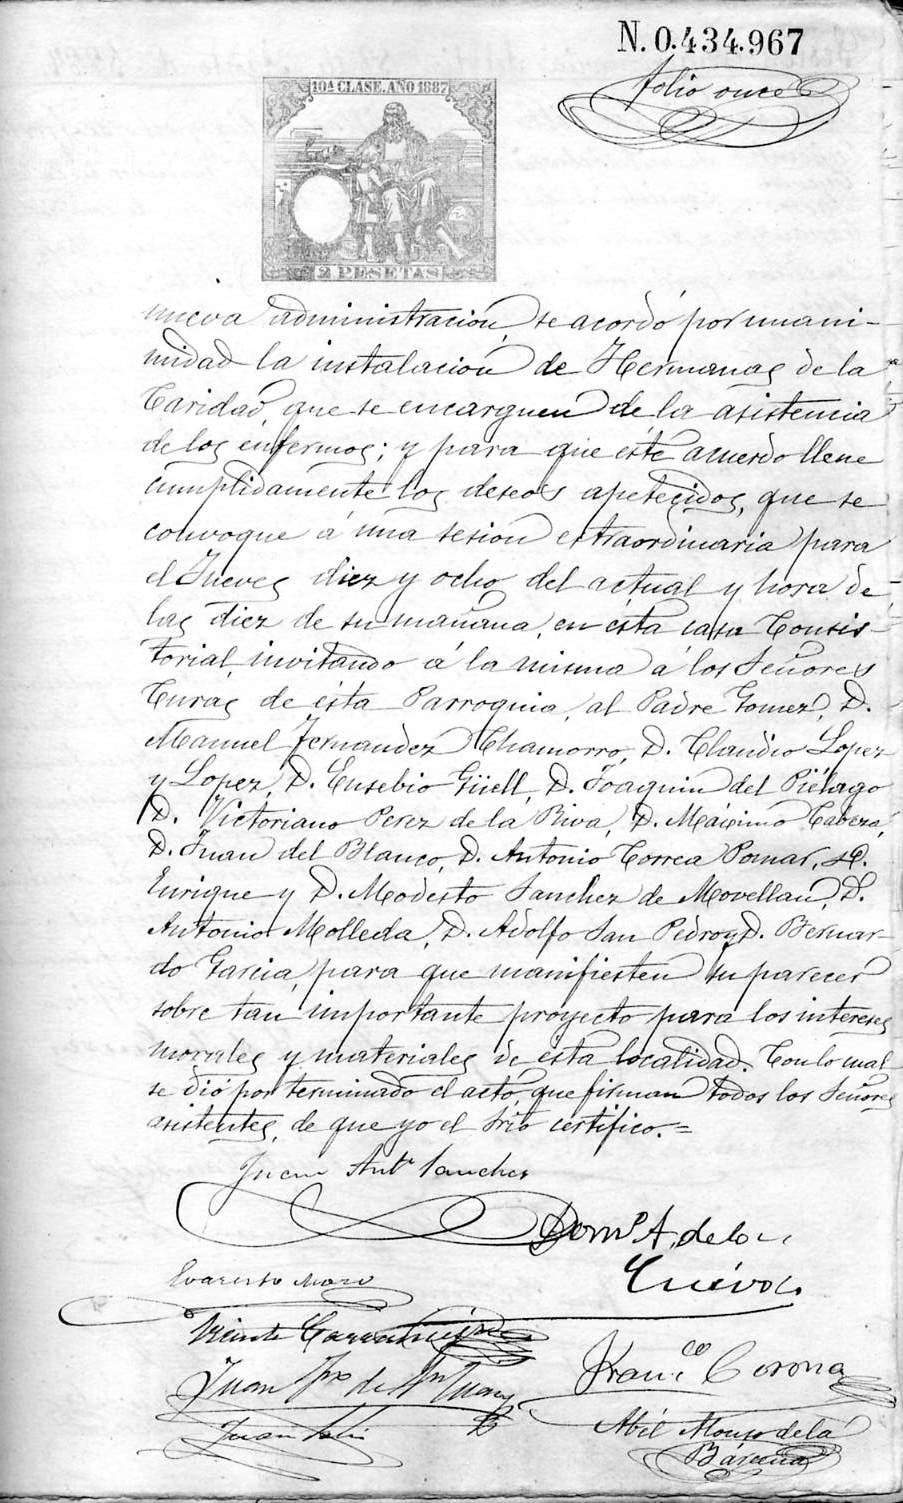 N. 0.434.967
folio once
10ª CLASE. AÑO 1887
2 PESETAS
nueva administracion, se acordó por unani-
midad la instalacion de Hermanas de la
Caridad que se encarguen de la asistencia
de los enfermos; y para que éste acuerdo llene
cumplidamente los deseos apetecidos, que se
convoque á una sesion estraordinaria para
el Jueves diez y ocho del actual y hora de
las diez de su mañana, en ésta casa Consis-
torial, invitando á la misma á los Señores
Curas de ésta Parroquia, al Padre Gomez, D.
Manuel Fernandez Chamorro, D. Claudio Lopez
y Lopez, D. Eusebio Güell, D. Joaquin del Piélago
D. Victoriano Perez de la Riva, D. Máximo Cabeza,
D. Juan del Blanco, D. Antonio Correa Pomar, D.
Enrique y D. Modesto Sanchez de Movellan, D.
Antonio Molleda, D. Adolfo San Pedro y D. Bernar-
do Garcia, para que manifiesten su parecer
sobre tan importante proyecto para los intereses
morales y materiales de ésta localidad. Con lo cual
se dió por terminado el acto, que firman todos los Señores
asistentes, de que yo el Srio certifico.=
Juan Antº Sanchez
Domº A. de la
Cueva
Evaristo Moro
Vicente
Juan de Sn Juan
Franco Corona
Juan
Abil Alonso de la
Bárcena